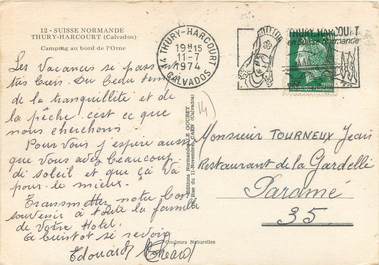 12 - SUISSE NORMANDE
THURY-HARCOURT (Calvados)
Camping au bord de l'Orne
14 THURY-HARCOURT
19H15
11-7
1974
CALVADOS
THURY HARCOURT
14
Les Vacances se passent
très bien. Du beau temps
de la tranquillité et de
la pêche c'est ce que
nous cherchons.
Pour Vous j'espère aussi
que vous avez beaucoup
de soleil et que ça va
pour le mieux.
Transmettez notre bon
souvenir à toute la famille
de Votre Hôtel.
A bientôt se revoir
Edouard
Monsieur TOURNEUX Jean
Restaurant de la Gardelle
Paramé
35
Couleurs Naturelles